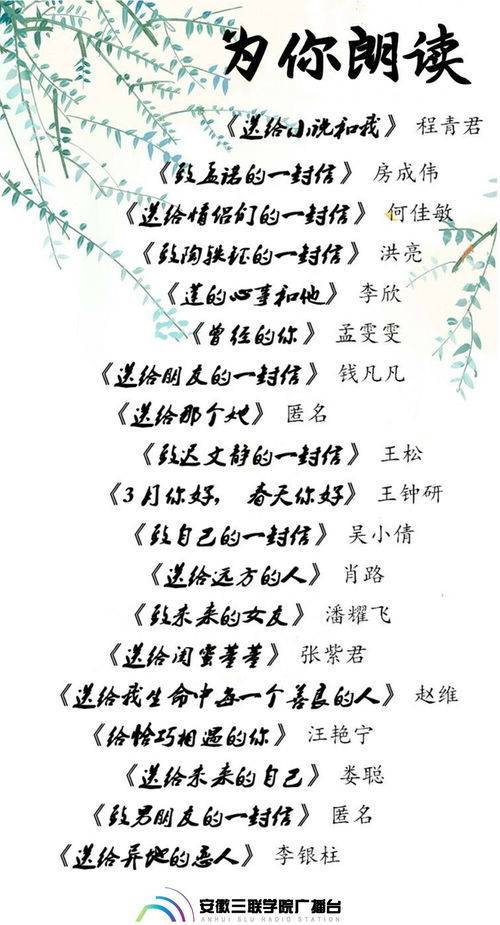 为你朗读
《送给小说和我》 程青君
《致孟诺的一封信》 房成伟
《送给情侣们的一封信》 何佳敏
《致陶轶钰的一封信》 洪亮
《莲的心事和他》 李欣
《曾经的你》 孟雯雯
《送给朋友的一封信》 钱凡凡
《送给那个她》 匿名
《致迟文静的一封信》 王松
《3月你好，春天你好》 王钟研
《致自己的一封信》 吴小倩
《送给远方的人》 肖路
《致未来的女友》 潘耀飞
《送给闺蜜董董》 张紫君
《送给我生命中每一个善良的人》 赵维
《给恰巧相遇的你》 汪艳宁
《送给未来的自己》 娄聪
《致男朋友的一封信》 匿名
《送给异地的恋人》 李银柱
安徽三联学院广播台
ANHUI SLU RADIO STATION